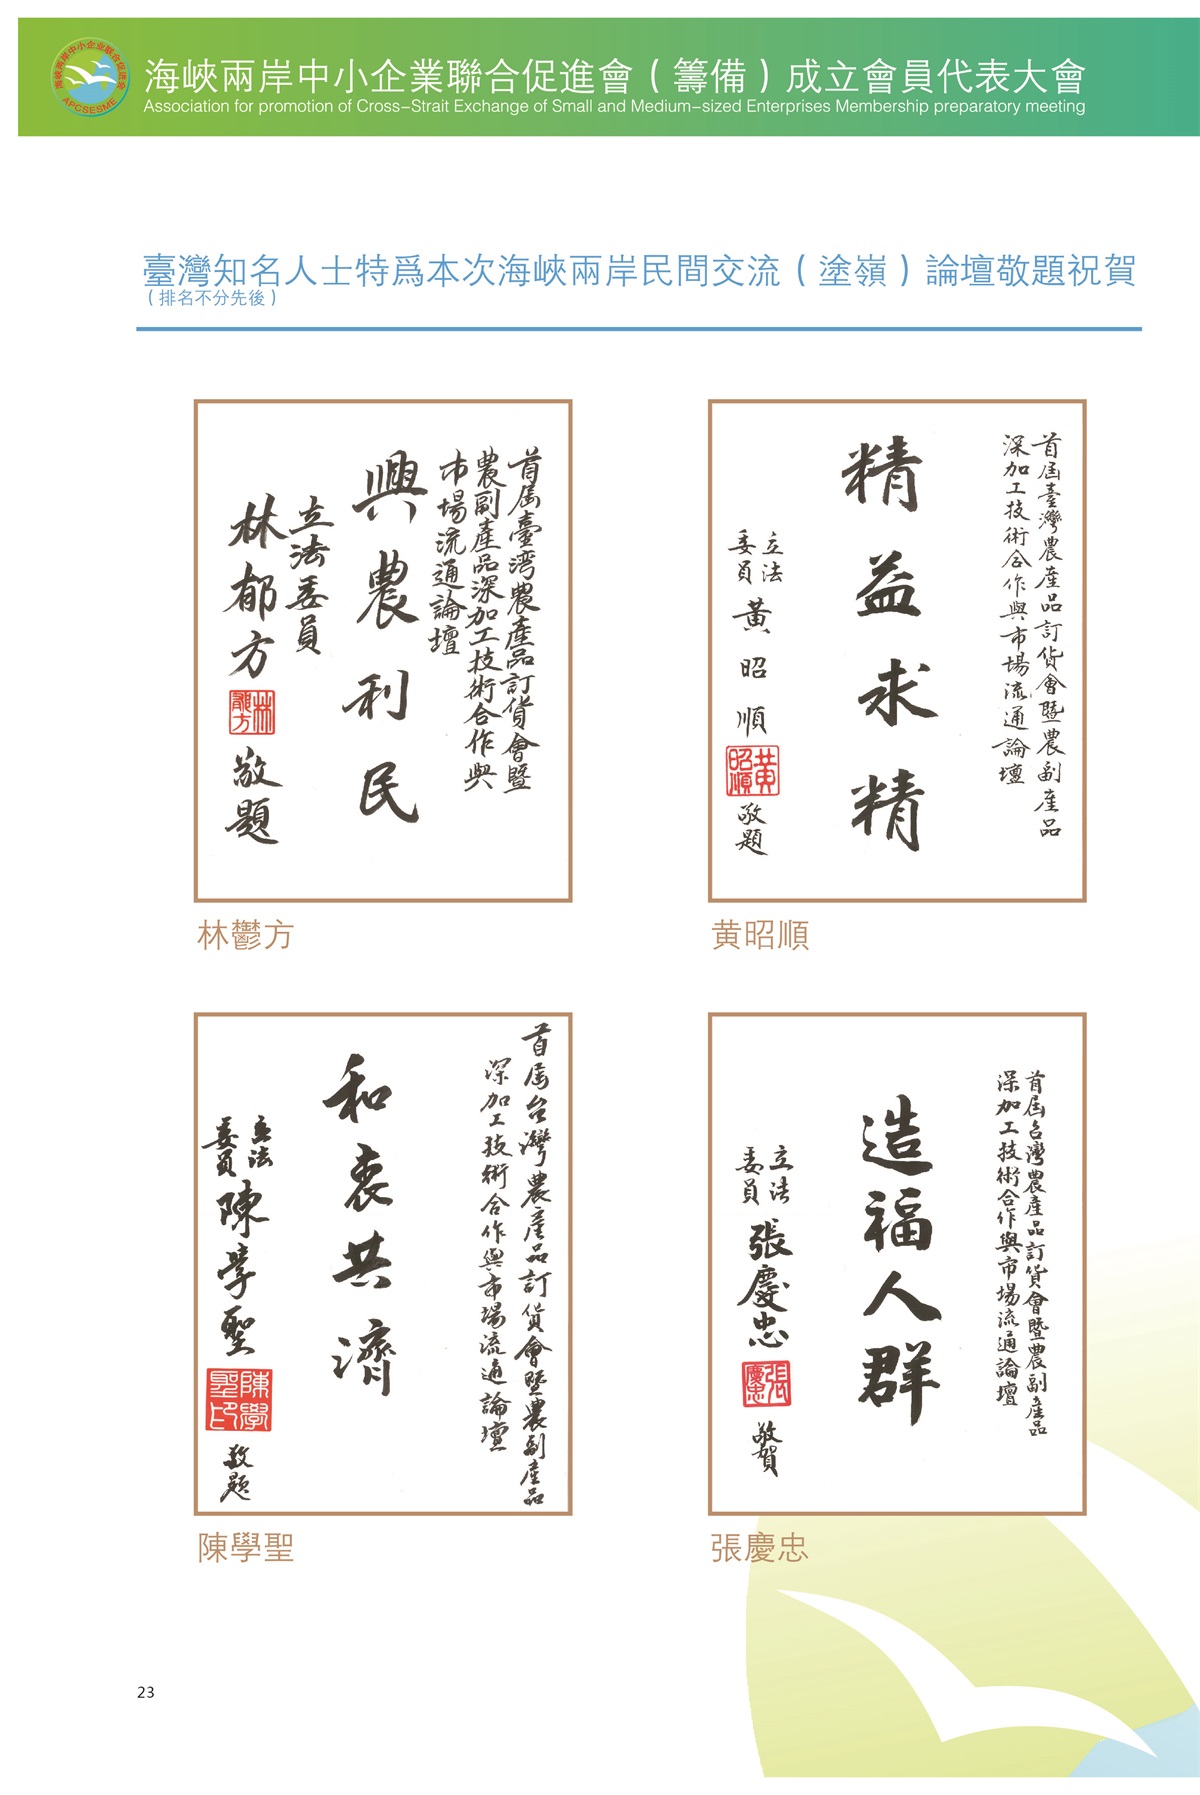 海峽兩岸中小企业联合促進會
APCSESME
海峽兩岸中小企業聯合促進會（籌備）成立會員代表大會
Association for promotion of Cross-Strait Exchange of Small and Medium-sized Enterprises Membership preparatory meeting
臺灣知名人士特爲本次海峽兩岸民間交流（塗嶺）論壇敬題祝賀
（排名不分先後）
首屆臺湾農產品訂貨會暨
農副產品深加工技術合作與
市場流通論壇
興農利民
立法委員
林郁方
林郁方
敬題
林鬱方
首屆臺灣農產品訂貨會暨農副產品
深加工技術合作與市場流通論壇
精益求精
立法
委員
黃昭順
黃昭順
敬題
黄昭順
首屆台灣農產品訂貨會暨農副產品
深加工技術合作與市場流通論壇
和衷共濟
立法
委員
陳學聖
陳學聖印
敬題
陳學聖
首屆台灣農產品訂貨會暨農副產品
深加工技術合作與市場流通論壇
造福人群
立法
委員
張慶忠
張慶忠
敬賀
張慶忠
23